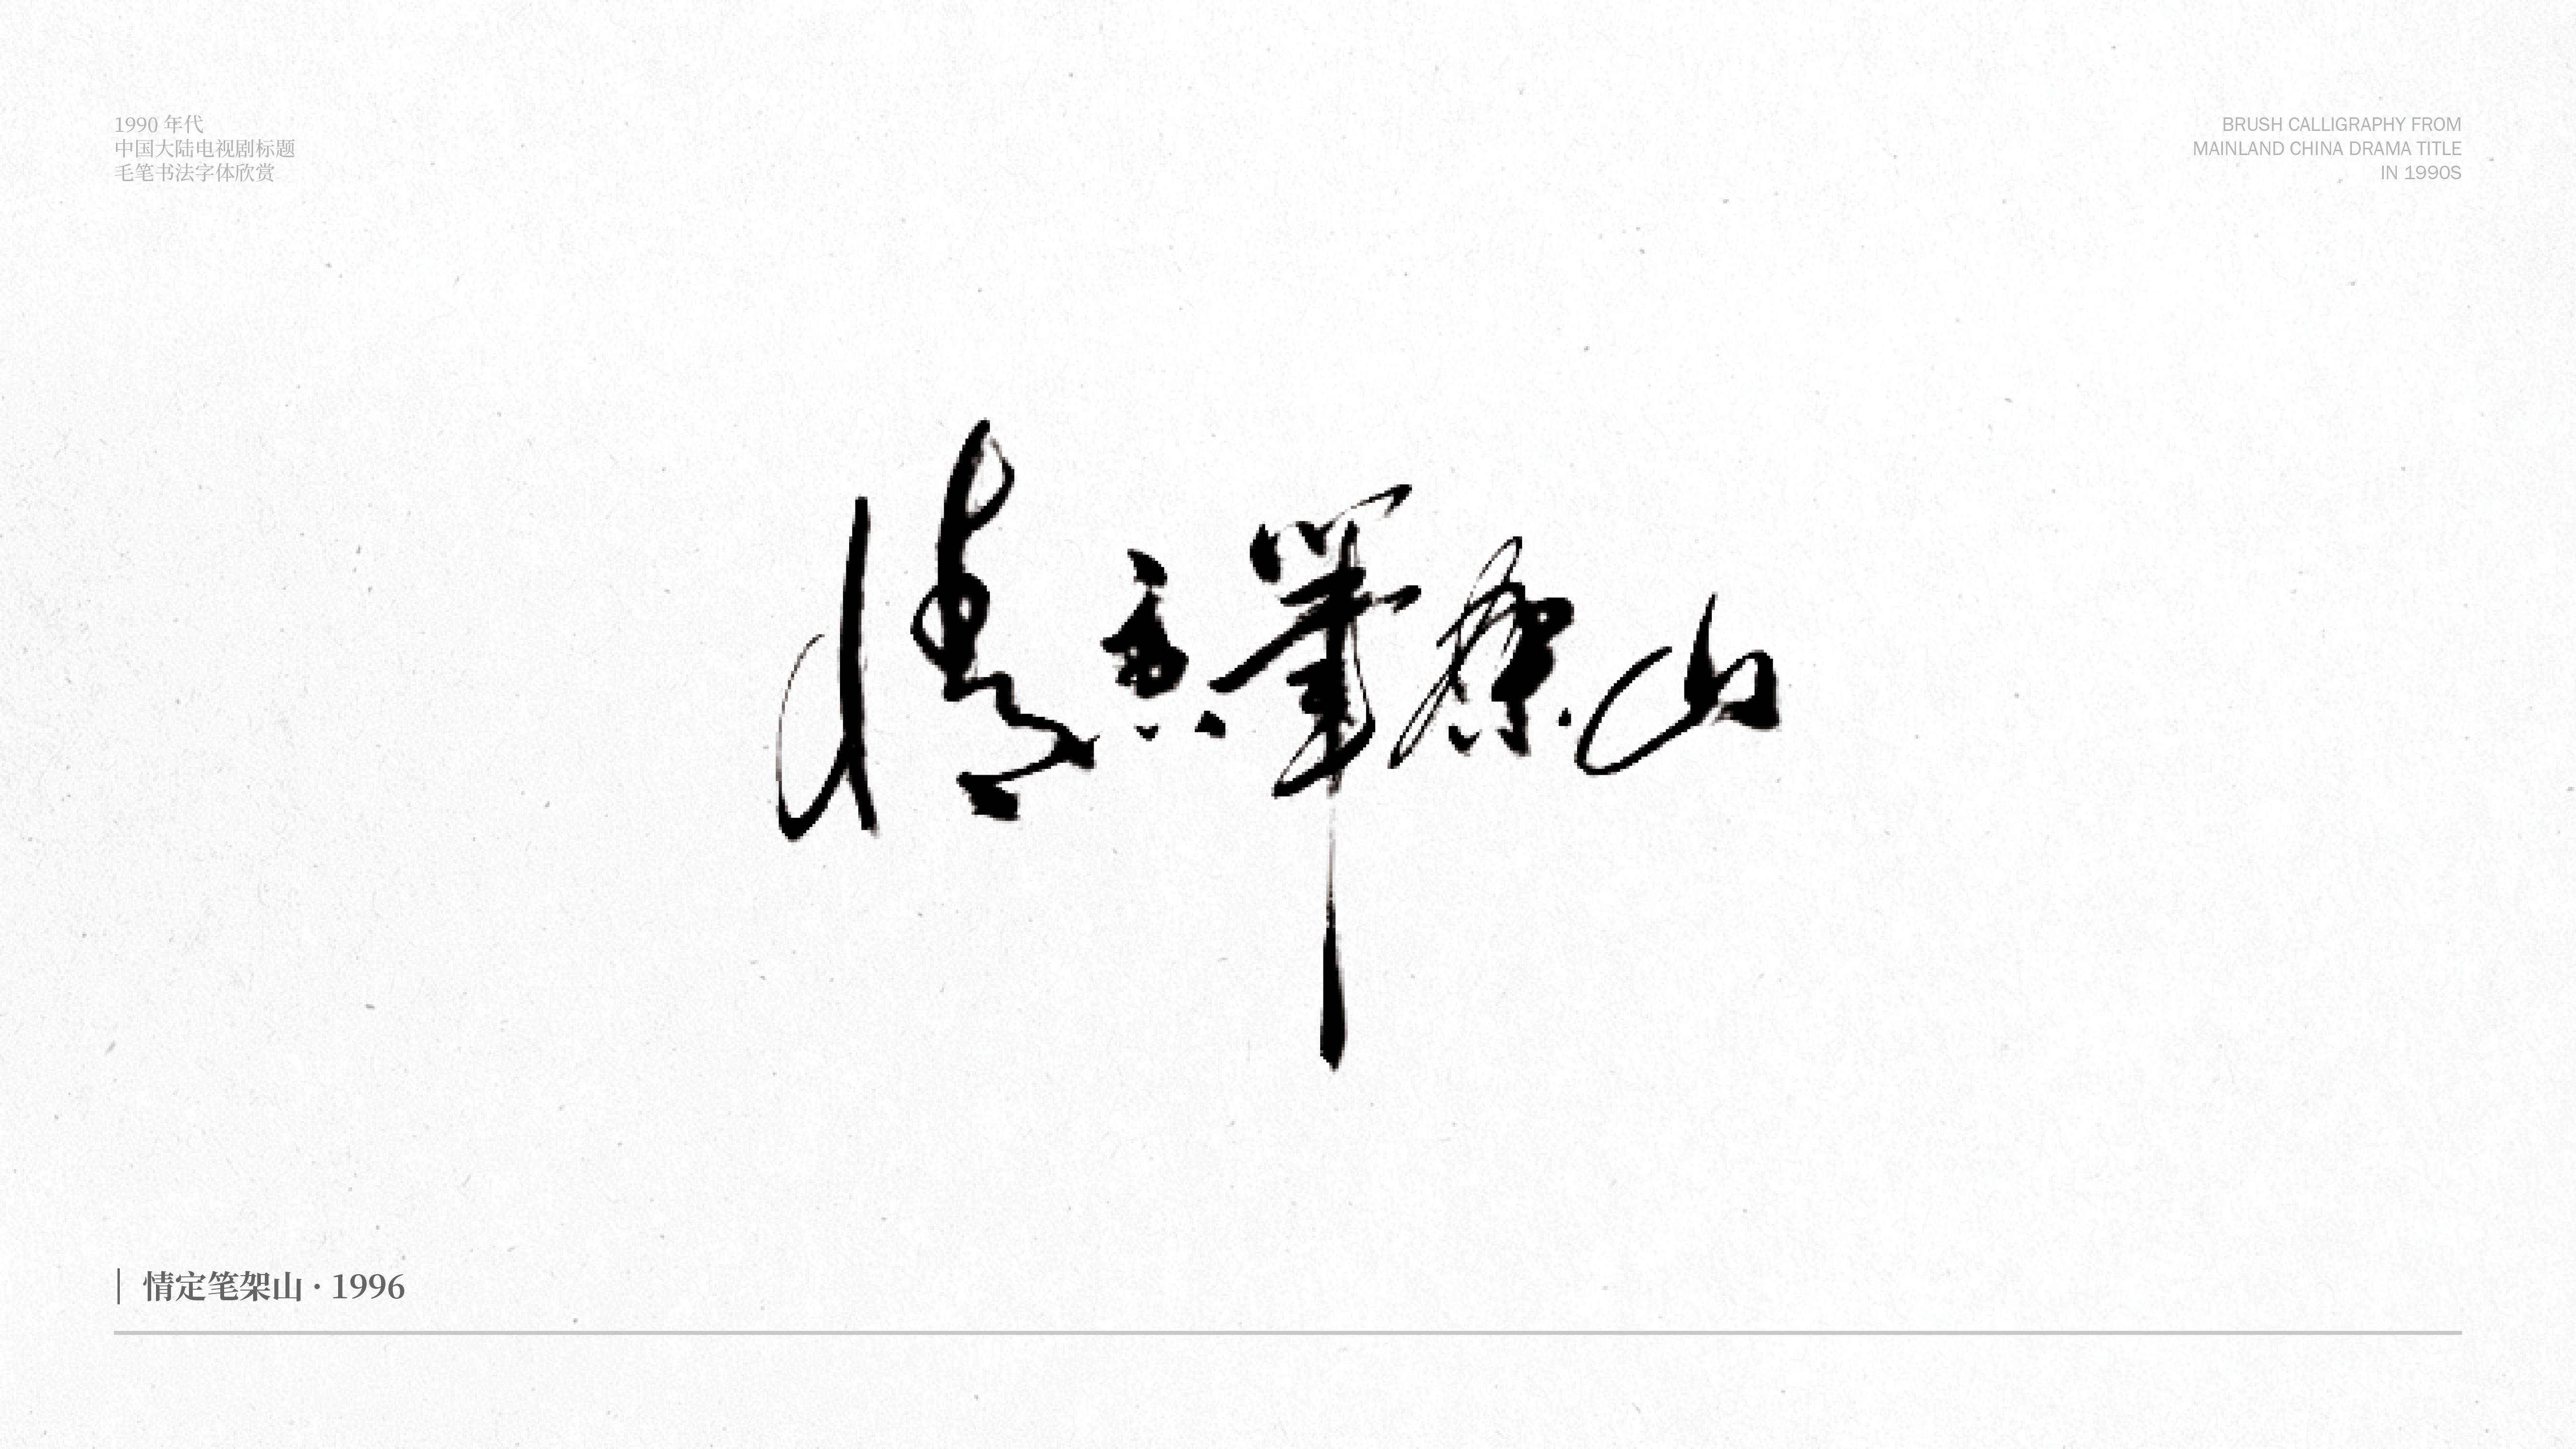 1990 年代
中国大陆电视剧标题
毛笔书法字体欣赏
BRUSH CALLIGRAPHY FROM
MAINLAND CHINA DRAMA TITLE
IN 1990S
情定筆架山
情定笔架山 · 1996